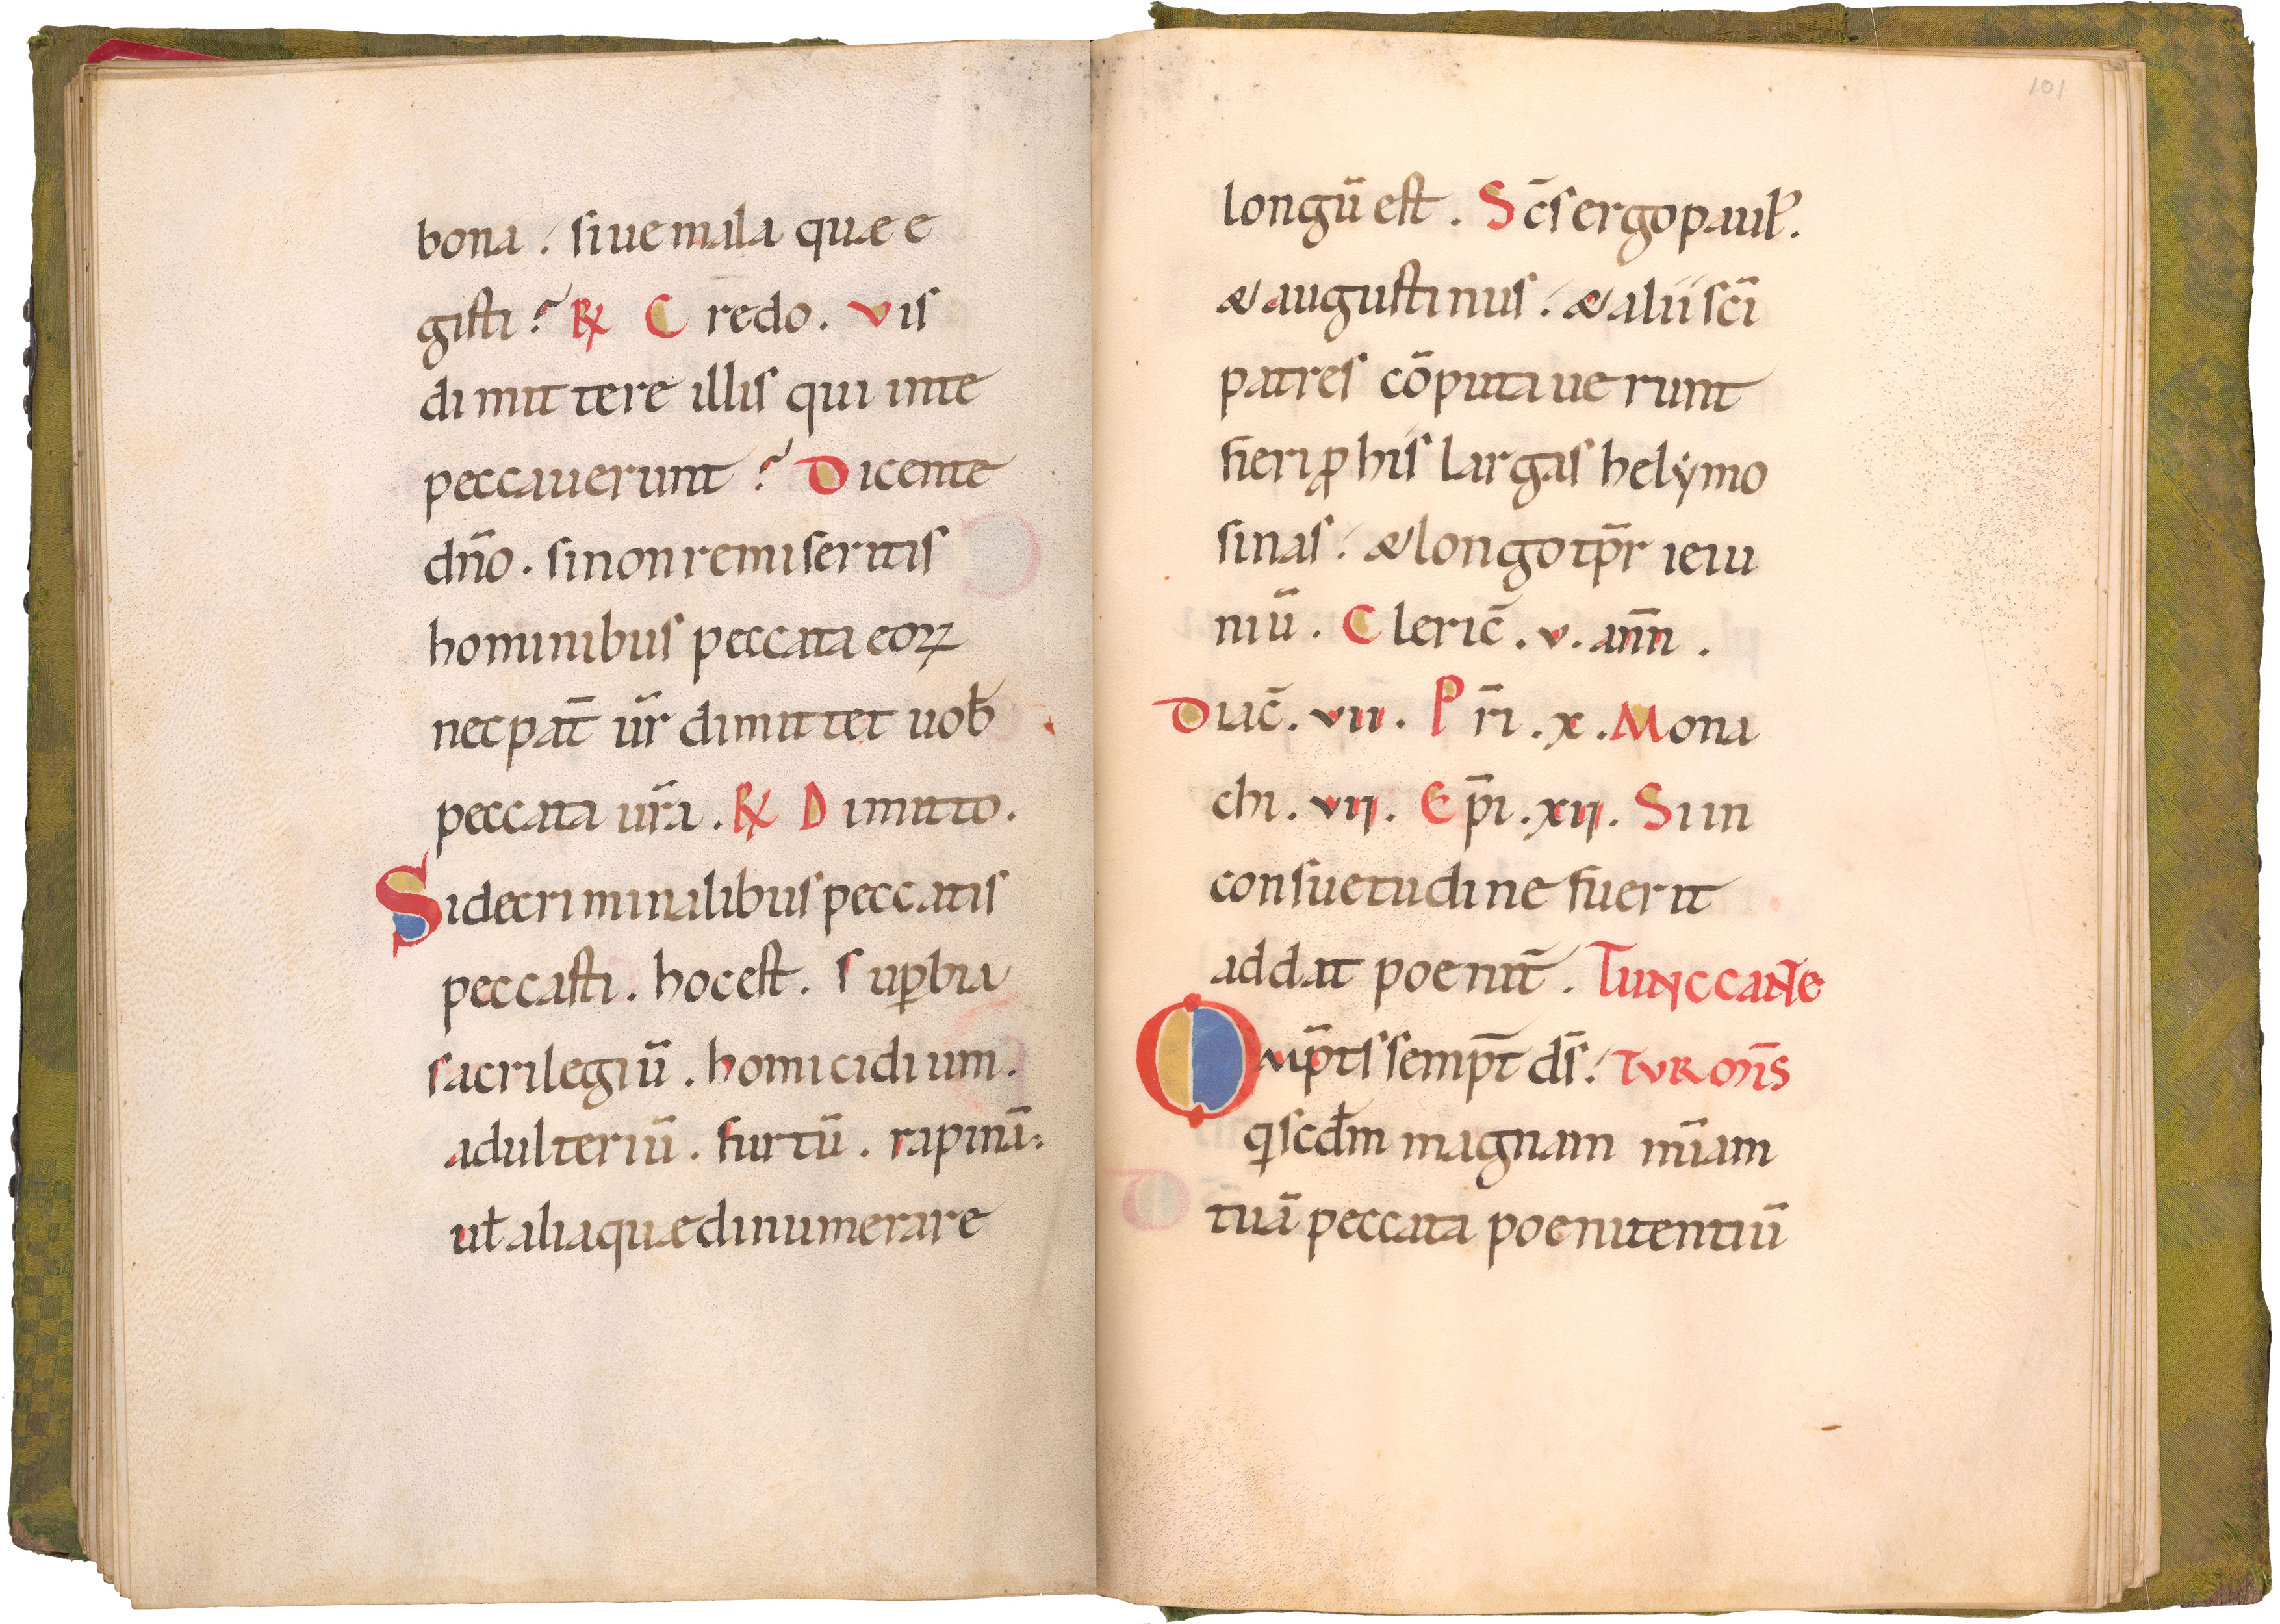 bona . siue mala quæ e
gisti ? ℞ Credo . Vis
dimittere illis qui inte
peccauerunt ? Dicente
dn̄o . sinonremiseritis
hominibus peccata eoꝝ
necpat̄ ur̄ dimittet uob̄
peccata ur̄a . ℞ Dimitto .
Sidecriminalibus peccatis
peccasti . hocest . suꝑbia
sacrilegiū . homicidium .
adulteriū . furtū . rapinā :
ul̄ alia quædinumerare
101
longū est . Sc̄s ergo paul᾽ .
& augustinus . & alii sc̄i
patres cōputauerunt
fieri ꝓ his largas helẏmo
sinas . & longo tp̄r ieiu
niū . Cleric̄ . v . ann̄ .
Diac̄ . vii . Pr̄i . x . Mona
chi . vii . Ep̄i . xii . Si in
consuetudine fuerit
addat poenit̄ . Tunc cane
Omp̄ts semp̄t ds̄ . TVRON̄S
qi scdm̄ magnam mīam
tuā peccata poenitentiū